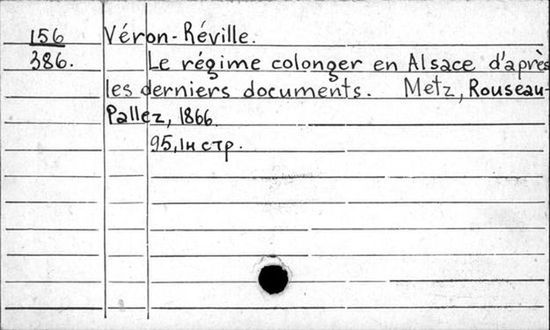 156 Véron-Réville.
386. Le régime colonger en Alsace d'après
les derniers documents. Metz, Rouseau-
Pallez, 1866.
95,1н стр.